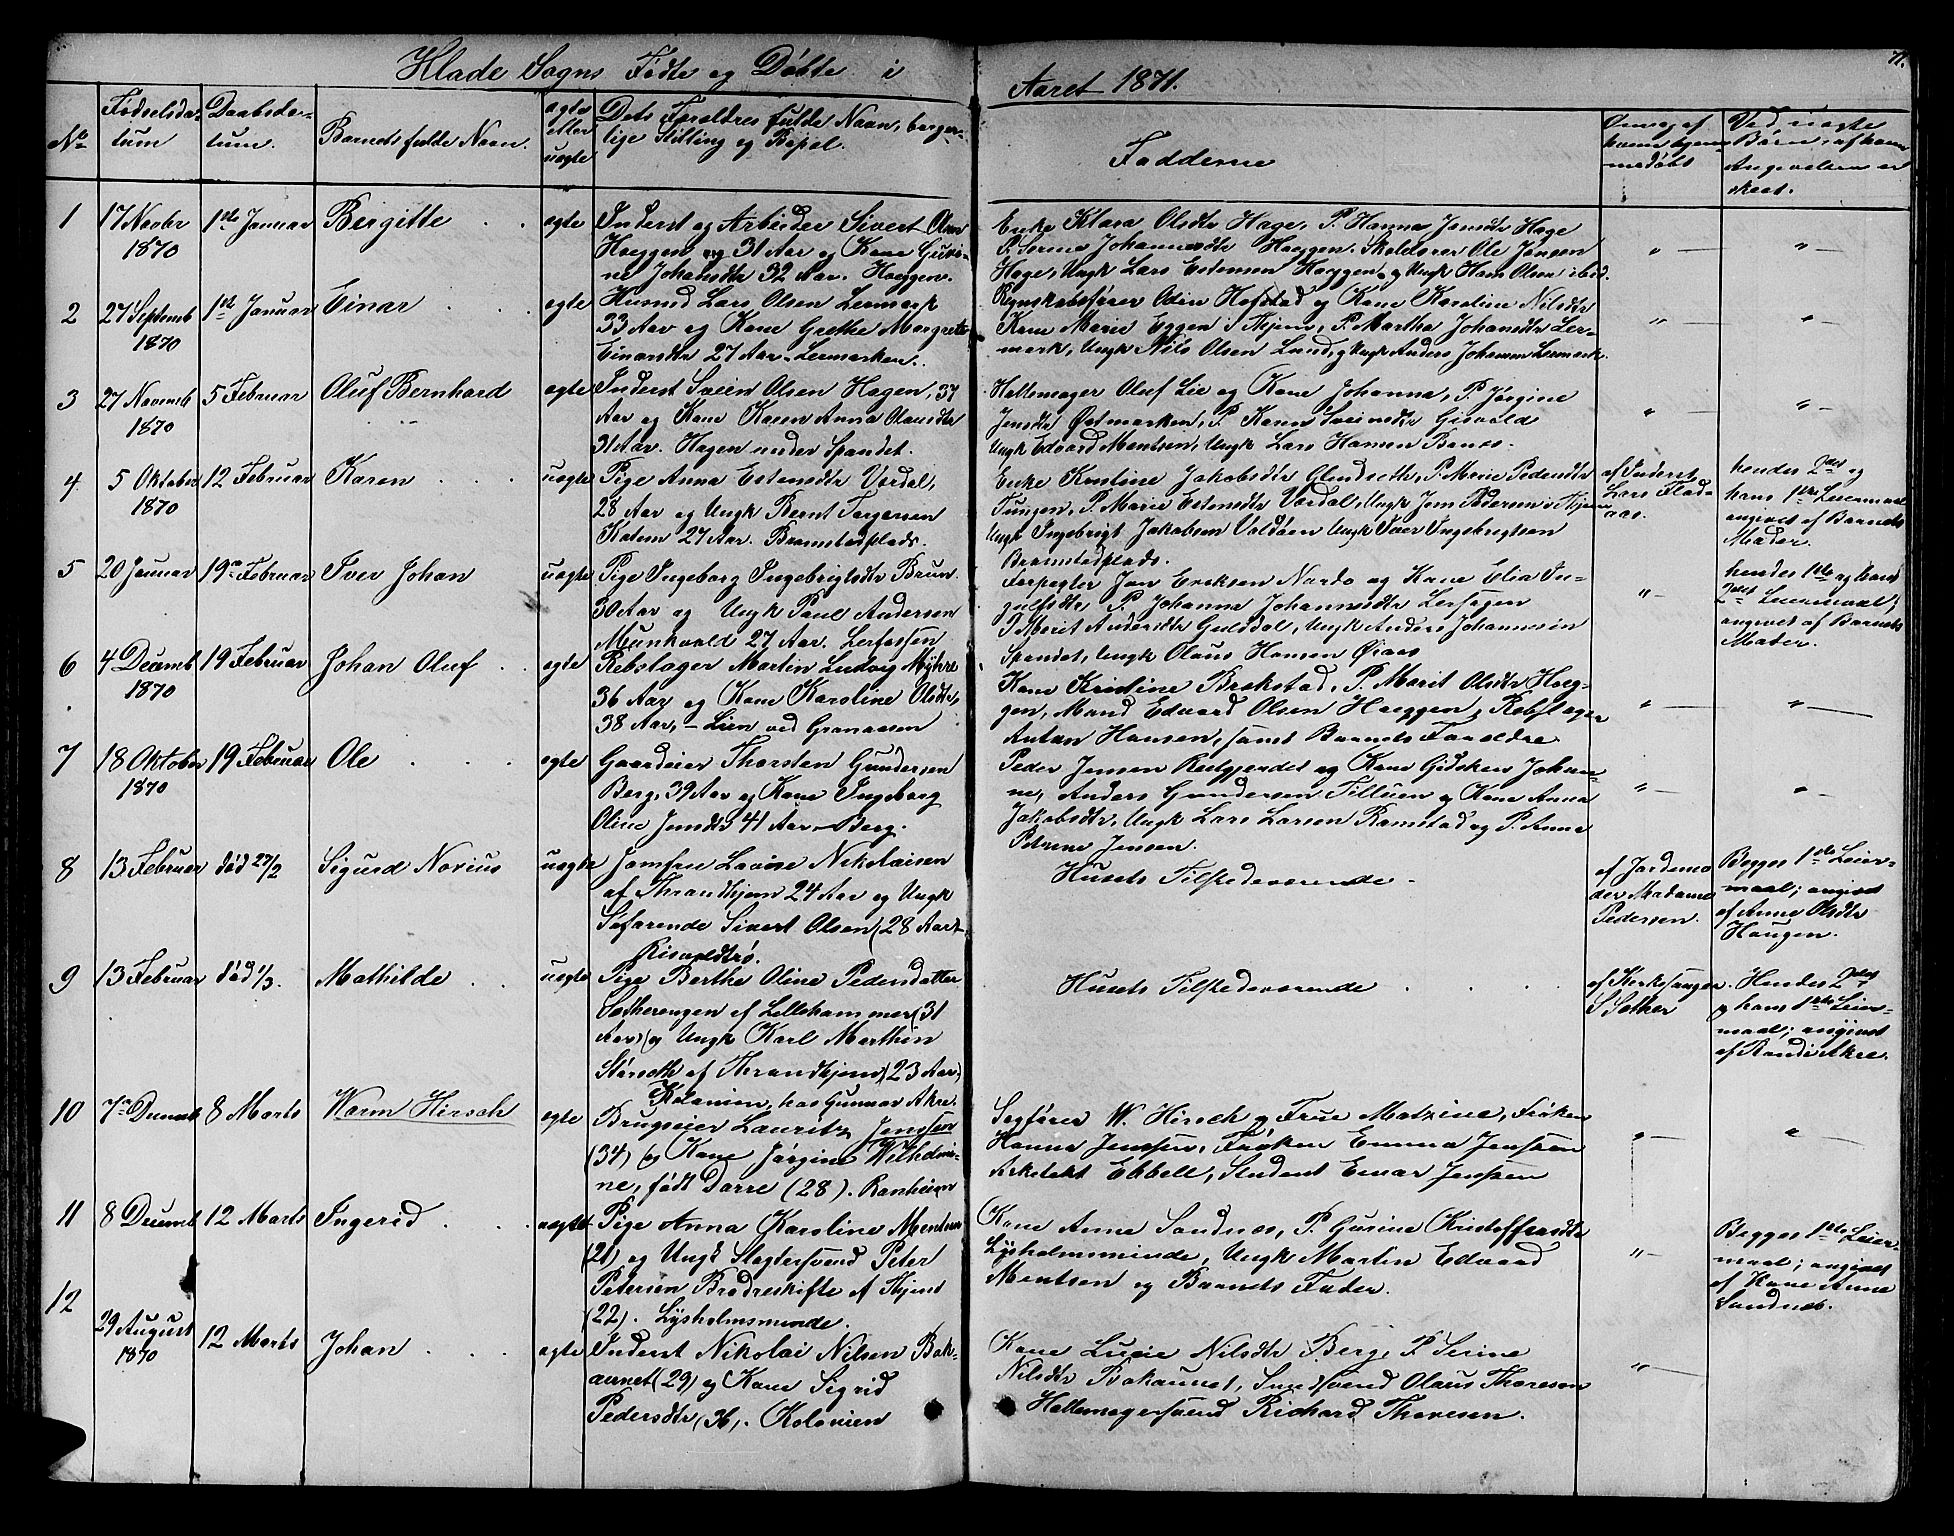 Hlade Sogns Fødte og Døbte i Aaret 1871.
71.
No
Fødselsda-
tum
Daabsda-
tum.
Barnets fulde Navn.
ægte
eller
uægte
Dets Forældres fulde Navn, borger-
lige Stilling og Bopæl.
Fadderne
Om og af
hvem hjem-
medøbt
Ved uægte
Børn, af hvem
Angivelsen er
skeet.
1
17 Novbr
1870
1ste Januar
Bergitte
ægte
Inderst og Arbeider Sivert Olsen
Hoeggen og 31 Aar og Kone Guri-
ne Johansdtr 32 Aar. Hoeggen.
Enke Klara Olsdtr Hage, P. Hanna Jensdtr Hage
P. Serena Johannesdtr Hoeggen. Skolelærer Ole Jensen
Hage, Ungk Lars Estensen Hoeggen og Ungk Hans Olsen ibid.
"
"
2
27 Septemb
1870
1ste Januar
Einar
ægte
Husmd Lars Olsen Leermark
33 Aar og Kone Grethe Margrete
Einarsdtr 27 Aar. Leermarken.
Regnskabsfører Odin Hofstad og Kone Karoline Nilsdtr
Kone Marie Eggen i Thjem, P. Martha Johansdtr Ler-
mark, Ungk Nils Olsen Lund, og Ungk Anders Johansen Leermark.
"
"
3
27 Novemb
1870
5 Februar
Oluf Bernhard
ægte
Inderst Svein Olsen Hagen, 37
Aar og Kone Karen Anna Olausdtr
31 Aar. Hagen under Spandet.
Hattemager Oluf Lie og Kone Johanna, P. Jørgine
Jensdtr Østmarken, P. Karen Sveinsdtr Gisvold
Ungk Edvard Mentsen, Ungk Lars Hansen
"
"
4
5 Oktober
1870
12 Februar
Karen
uægte
Pige Anna Estensdtr Vordal,
28 Aar og Ungk Bernt Torgersen
Katem 27 Aar. Bromstadplads.
Enke Kirstine Jakobsdtr P. Marie Pedersdtr
Tungen, P. Marie Estensdtr Vordal, Ungk Jon Pedersen i Thjem
Ungk Ingebrigt Jakobsen Voldøen Ungk Iver Ingebrigtsen
Bromstadplads.
af Inderst
Lars Flad-
aas.
hendes 2det og
hans 1ste Leiermaal
angivet af Barnets
Moder.
5
20 Januar
19de Februar
Iver Johan
uægte
Pige Ingeborg Ingebrigtsdtr Brun
30 Aar og Ungk Paul Andersen
Munkvold 27 Aar. Lerfossen
Forpagter Jon Eriksen Nardo og Kone Elia In-
gulfsdtr P. Johanna Johannesdtr
P Marit Andersdtr Guldal, Ungk Anders Johannesen
Spandet, Ungk Olaus Hansen Øiaas
"
hendes 1ste og hans
2det Leiermaal;
angivet af Barnets
Moder.
6
4 Decemb
1870
19 Februar
Johan Oluf
ægte
Rebslager Martin Ludvig Myhre
36 Aar og Kone Karoline Olsdtr,
38 Aar, - Lien ved Granaasen
Kone Kristine Brekstad, P. Marit Olsdtr Hoeg-
gen, Mand Edvard Olsen Hoeggen, Rebslager
Anton Hansen, samt Barnets Forældre
"
"
7
18 Oktober
1870
19 Februar
Ole
ægte
Gaardeier Thorsten Gundersen
Berg, 39 Aar og Kone Ingeborg
Oline Jensdtr 41 Aar. Berg.
Peder Jensen og Kone Gidsken Johan-
ne, Anders Gundersen Tilluen og Kone Anna
Jakobsdtr, Ungk Lars Larsen Ramstad og P. Anne
Petrine Jensen.
"
"
8
13 Februar
død 27/2
Sigurd Norius
uægte
Jomfru Lovise Nikolaisen
af Throndhjem 24 Aar og Ungk
Søfarende Sivert Olsen (28 Aar).
Risvoldtrø.
Husets Tilstedeværende
af Jordemo
der Madame
Pedersen.
Begges 1ste Leier-
maal; angivet
af Anne Olsdtr
Haugen.
9
13 Februar
død 1/3.
Mathilde
uægte
Pige Berthe Oline Pedersdatter
Sætherengen af Lillehammer (31
Aar) og Ungk Karl Marthin
Størseth af Throndhjem (23 Aar)
Kolonien, hos Gunnar Akre.
Husets Tilstedeværende
af Kirkesanger
S Sæther
Hendes 2det
og hans 1ste Leier-
maal; angivet
af Randi Akre.
10
7de Decemb
8 Marts
Worm Hirsch
ægte
Brugseier Lauritz Jenssen
(34) og Kone Jørgine Wilhelmi-
ne, født Darre (28). Ranheim
Sagfører W. Hirsch og Frue Matzine, Frøken
Hanna Jenssen, Frøken Emma Jenssen
Arkitekt Ebbell, Student Einar Jenssen
"
"
11
8 Decemb
12 Marts
Ingerid
uægte
Pige Anna Karoline Mentsen
(21) og Ungk Slagtersvend Peter
Petersen Brødreskifte af Thjem
(22). Lysholmsminde.
Kone Anne Sandnes, P. Gurine Kristoffersdtr
Lysholmsminde, Ungk Martin Edvard
Mentsen og Barnets Fader.
"
Begges 1ste Leier-
maal; angivet
af Kone Anne
Sandnes.
12
29 August
1870
12 Marts
Johan
ægte
Inderst Nikolai Nilsen Bak-
aunet (29) og Kone Sigrid
Pedersdtr (36). Kolonien
Kone Lucie Nilsdtr Berg, P. Serine
Nilsdtr Bakaunet, Svend Olaus Thoresen
Hattemagersvend Richard Thoresen.
"